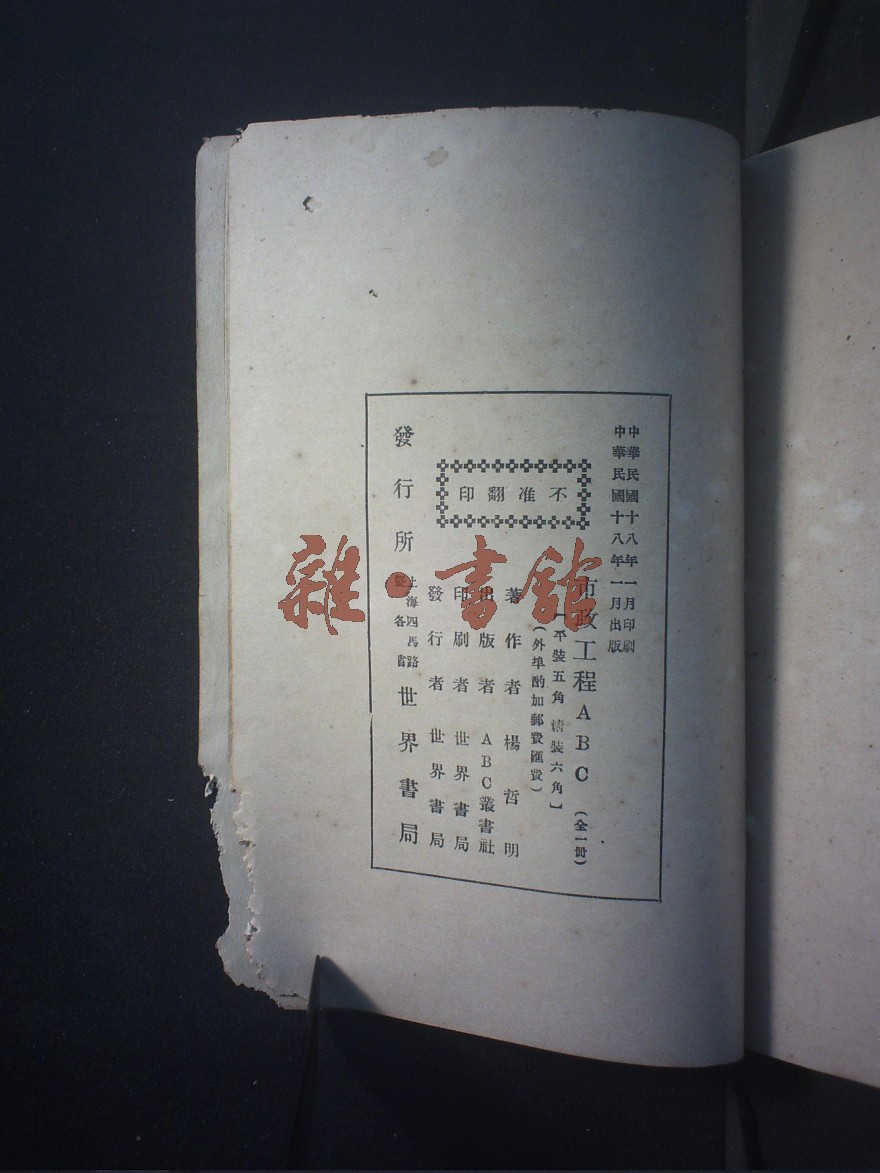 中華民國十八年一月印刷
中華民國十八年一月出版
市政工程ABC(全一冊)
【平裝五角 精裝六角】
(外埠酌加郵費匯費)
不准翻印
著作者 楊哲明
出版者 ABC叢書社
印刷者 世界書局
發行者 世界書局
發行所 上海四馬路暨各省 世界書局
雜·書館